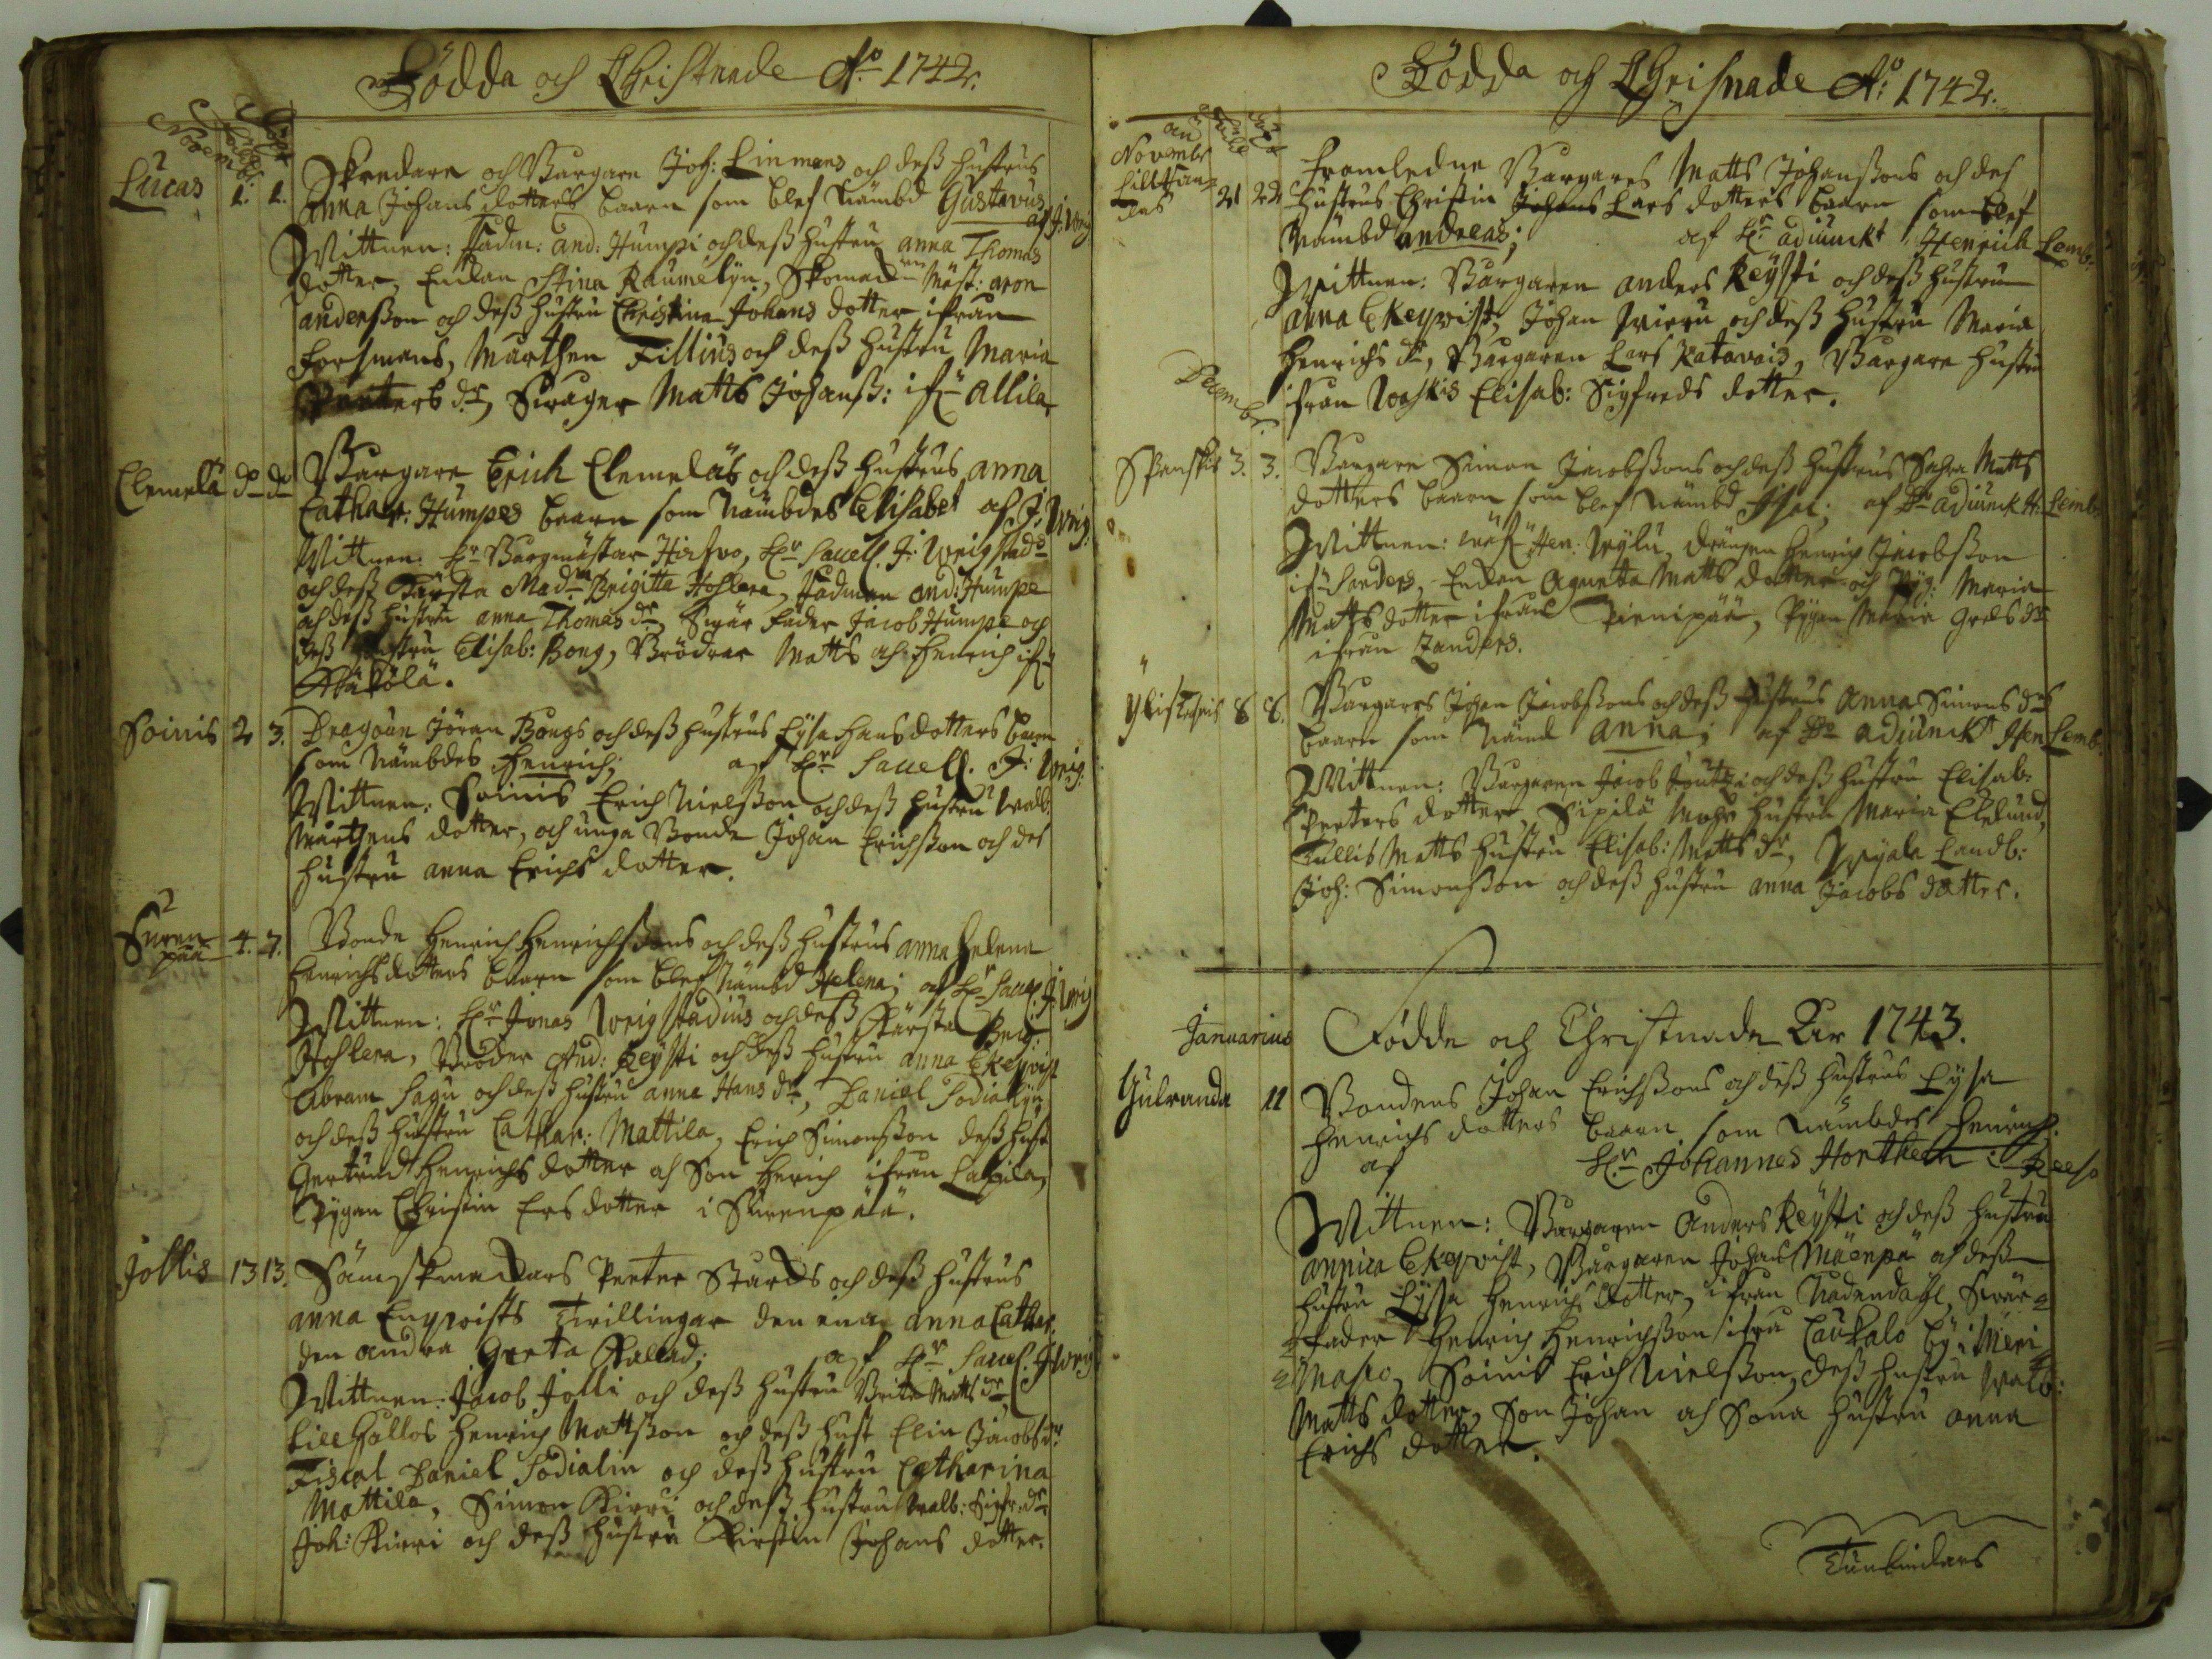 Födda och Christnade Ao 1742.
Novemb:
Lucas 1. 1. Skredare och Burgare Joh: Linmans och deß hustrus
Anna Johans dotters baarn som blef Nämbd Gustavus
af J: Wrig
Wittnen: Fadm: And: Humpi och deß hustru Anna Thomas
dotter, Enkan Stina Raumelÿn, Skomak. Mäst: Aron
Anderßon och deß hustru Christina Johans dotter ifrån
Forsmans, Mårthen Fillius och deß hustru Maria
Peeters dr, Swager Matts Johanß: ifr Allila
Clemelä do do Burgare Erich Clemeläs och deß hustrus Anna
Cathar: Humpes baarn som Nämbdes Elisabet af J: Wrig:
Wittnen: Hr Borgmästar Hirfwo, Hr Sacell. J: Wrigstads
och deß Kärsta Madm Brigitta Hohlena, Fadmen And: Humpe
och deß hustru Anna Thomas dr, Swär fader Jacob Humpe och
deß hustru Elisab: Bong, Brödrar Matts och Henrich ifr
Kåköla.
Soinis 2 3. Dragoun Jöran Bongs och deß hustrus Lysa Hans dotters baarn
som Nämbdes Henrich; af Hr Sacell. J: Wrig:
Wittnen: Soinis Erich Nielßon och deß hustru Walb:
Mårthens dotter, och unga Bonde Johan Erichßon och des
hustru Anna Erichs dotter.
Suren
pää 4. 7. Bonde Henrich Henrichßons och deß hustrus Anna Helena
Henrichs dotters baarn som blef Nämbd Helena; af Hr Sacell. J: Wrig
Wittnen: Hr Jonas Wrigstadius och deß Kärsta Brig:
Hohlena, Broder And: Keÿsti och deß hustru Anna Ekeqvist
Abram Sagu och deß hustru Anna Hans dr, Daniel Sodialÿn
och deß hustru Cathar: Mattila, Erich Simonßon deß hust
Gertrud Henrichs dotter och Son Herich ifrån Laxila,
Pÿgan Christin Ers dotter i Surenpää.
Jollis 13 13. Sämskmakars Peeter Stards och deß hustrus
Anna Enqvists Twillingar den ena Anna Cathar.
den andra Greta Kallad; af Hr Sacel. J Wrig
Wittnen: Jacob Jolli och deß hustru Brita Matts dr,
Lill Hallos Henrich Mattßon och deß hust Elin Jacobs dr
Fiscal Daniel Sodialin och deß hustru Catharina
Mattila, Simon Kirri och deß hustru Walb: Sigfr: dr
Joh: Kirri och deß hustru Kirstin Johans dotter.
Födda och Chrisnade Ao: 1742.
Novemb
21 22 Framledne Burgares Matts Johanßons och des
hustrus Christin Johans Lars dotters baarn som blef
Nämbd Andreas; af Hr adiunkt Henrich Lemb:
Wittnen: Burgaren Anders Keÿsti och deß hustru
Anna Ekeqvist, Johan Wieru och deß hustru Maria
Henrichs dr, Burgaren Lars Katavais, Burgare hustru
ifrån Waskis Elisab: Sigfreds dotter.
Decembr.
Spanskis 3. 3. Burgare Simon Jacobßons och deß hustrus Sahra Matts
dotters baarn som blef Nämbd Isac; af Hr adiunck H: Lemb:
Wittnen: Hen: Wÿlu, drängen Henrich Jacobßon
ifr Sanders, Enkan Agneta Matts dotter och Pÿg: Maria
Matts dotter ifrån Pienipää, Pÿgan Maria Greds dr
ifrån Zanders.
8 8. Burgares Johan Jacobßons och deß hustrus Anna Simons drs
baarn som Nämd Anna; af Hr adiunckt Hen Lemb:
Wittnen: Burgaren Jacob och deß hustru Elisab:
Peeters dotter, Sipilä Mats hustru Maria Eklund,
Tullis Matts hustru Elisab: Matts dr, Wÿala Landb:
Joh: Simonßon och deß hustru Anna Jacobs dotter.
Januarius Födde och Christnade Åhr 1743.
Gulranda 11 Bondens Johan Erichßons och deß hustrus Lysa
Henrichs dotters baarn som nämbdes Henrich.
af Hr Johannes Horthen i Reeso
Wittnen: Burgaren Anders Keÿsti och deß hustru
Annica Ekeqvist, Burgaren Johan Mäenpä och deß
hustru Lyssa Henrichs dotter, ifrån Nådendahl, Swär-
fader Henrich Henrichßon ifrå Laukalo Bÿ i Meri
Masko, Soinis Erich Nielßon, deß hustru Walb:
Matts dotter, Son Johan och Sona hustru Anna
Erichs dotter.
Tunbindars